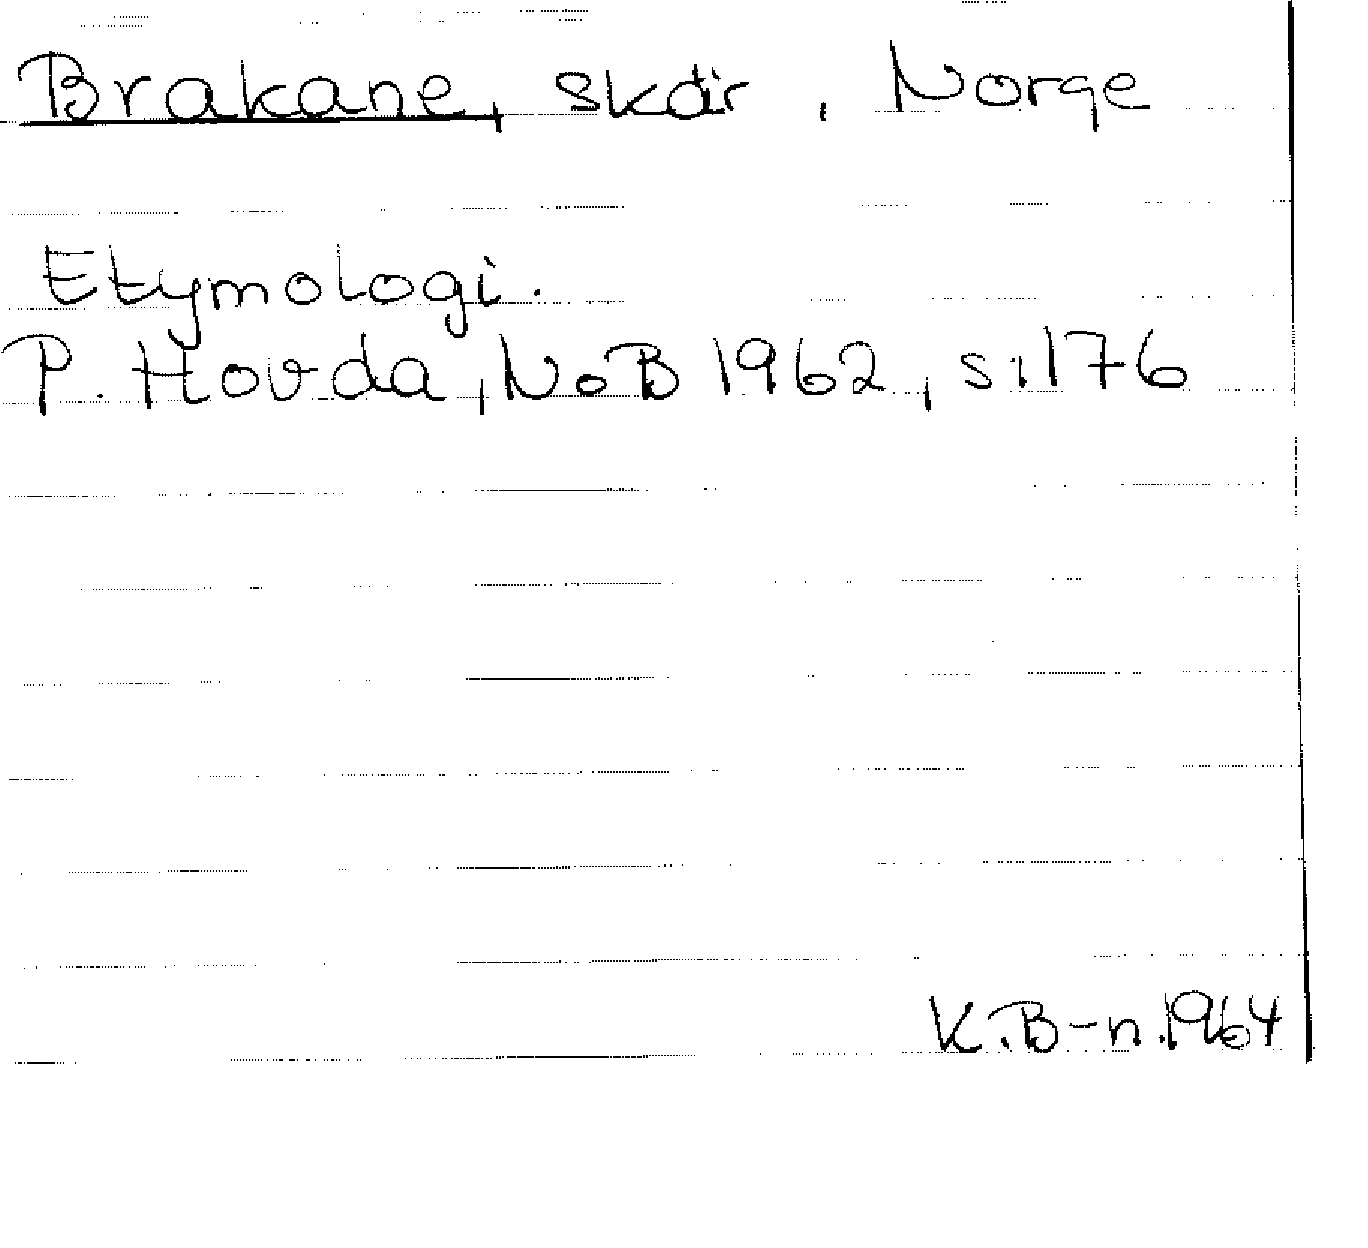 Brakane, skär, Norge
Etymologi.
P. Hovda, NoB 1962, s. 176
K.B-n. 1964